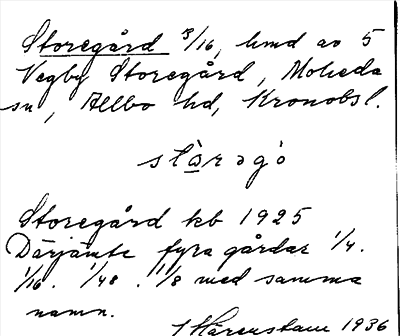 Storegård 3/16, hmd av 5
Vegby Storegård, Moheda
sn, Allbo hd, Kronobsl.
Storegård kb 1925
Därjämte fyra gårdar 1/4.
1/16. 1/48. 1/8 med samma
namn.
1936